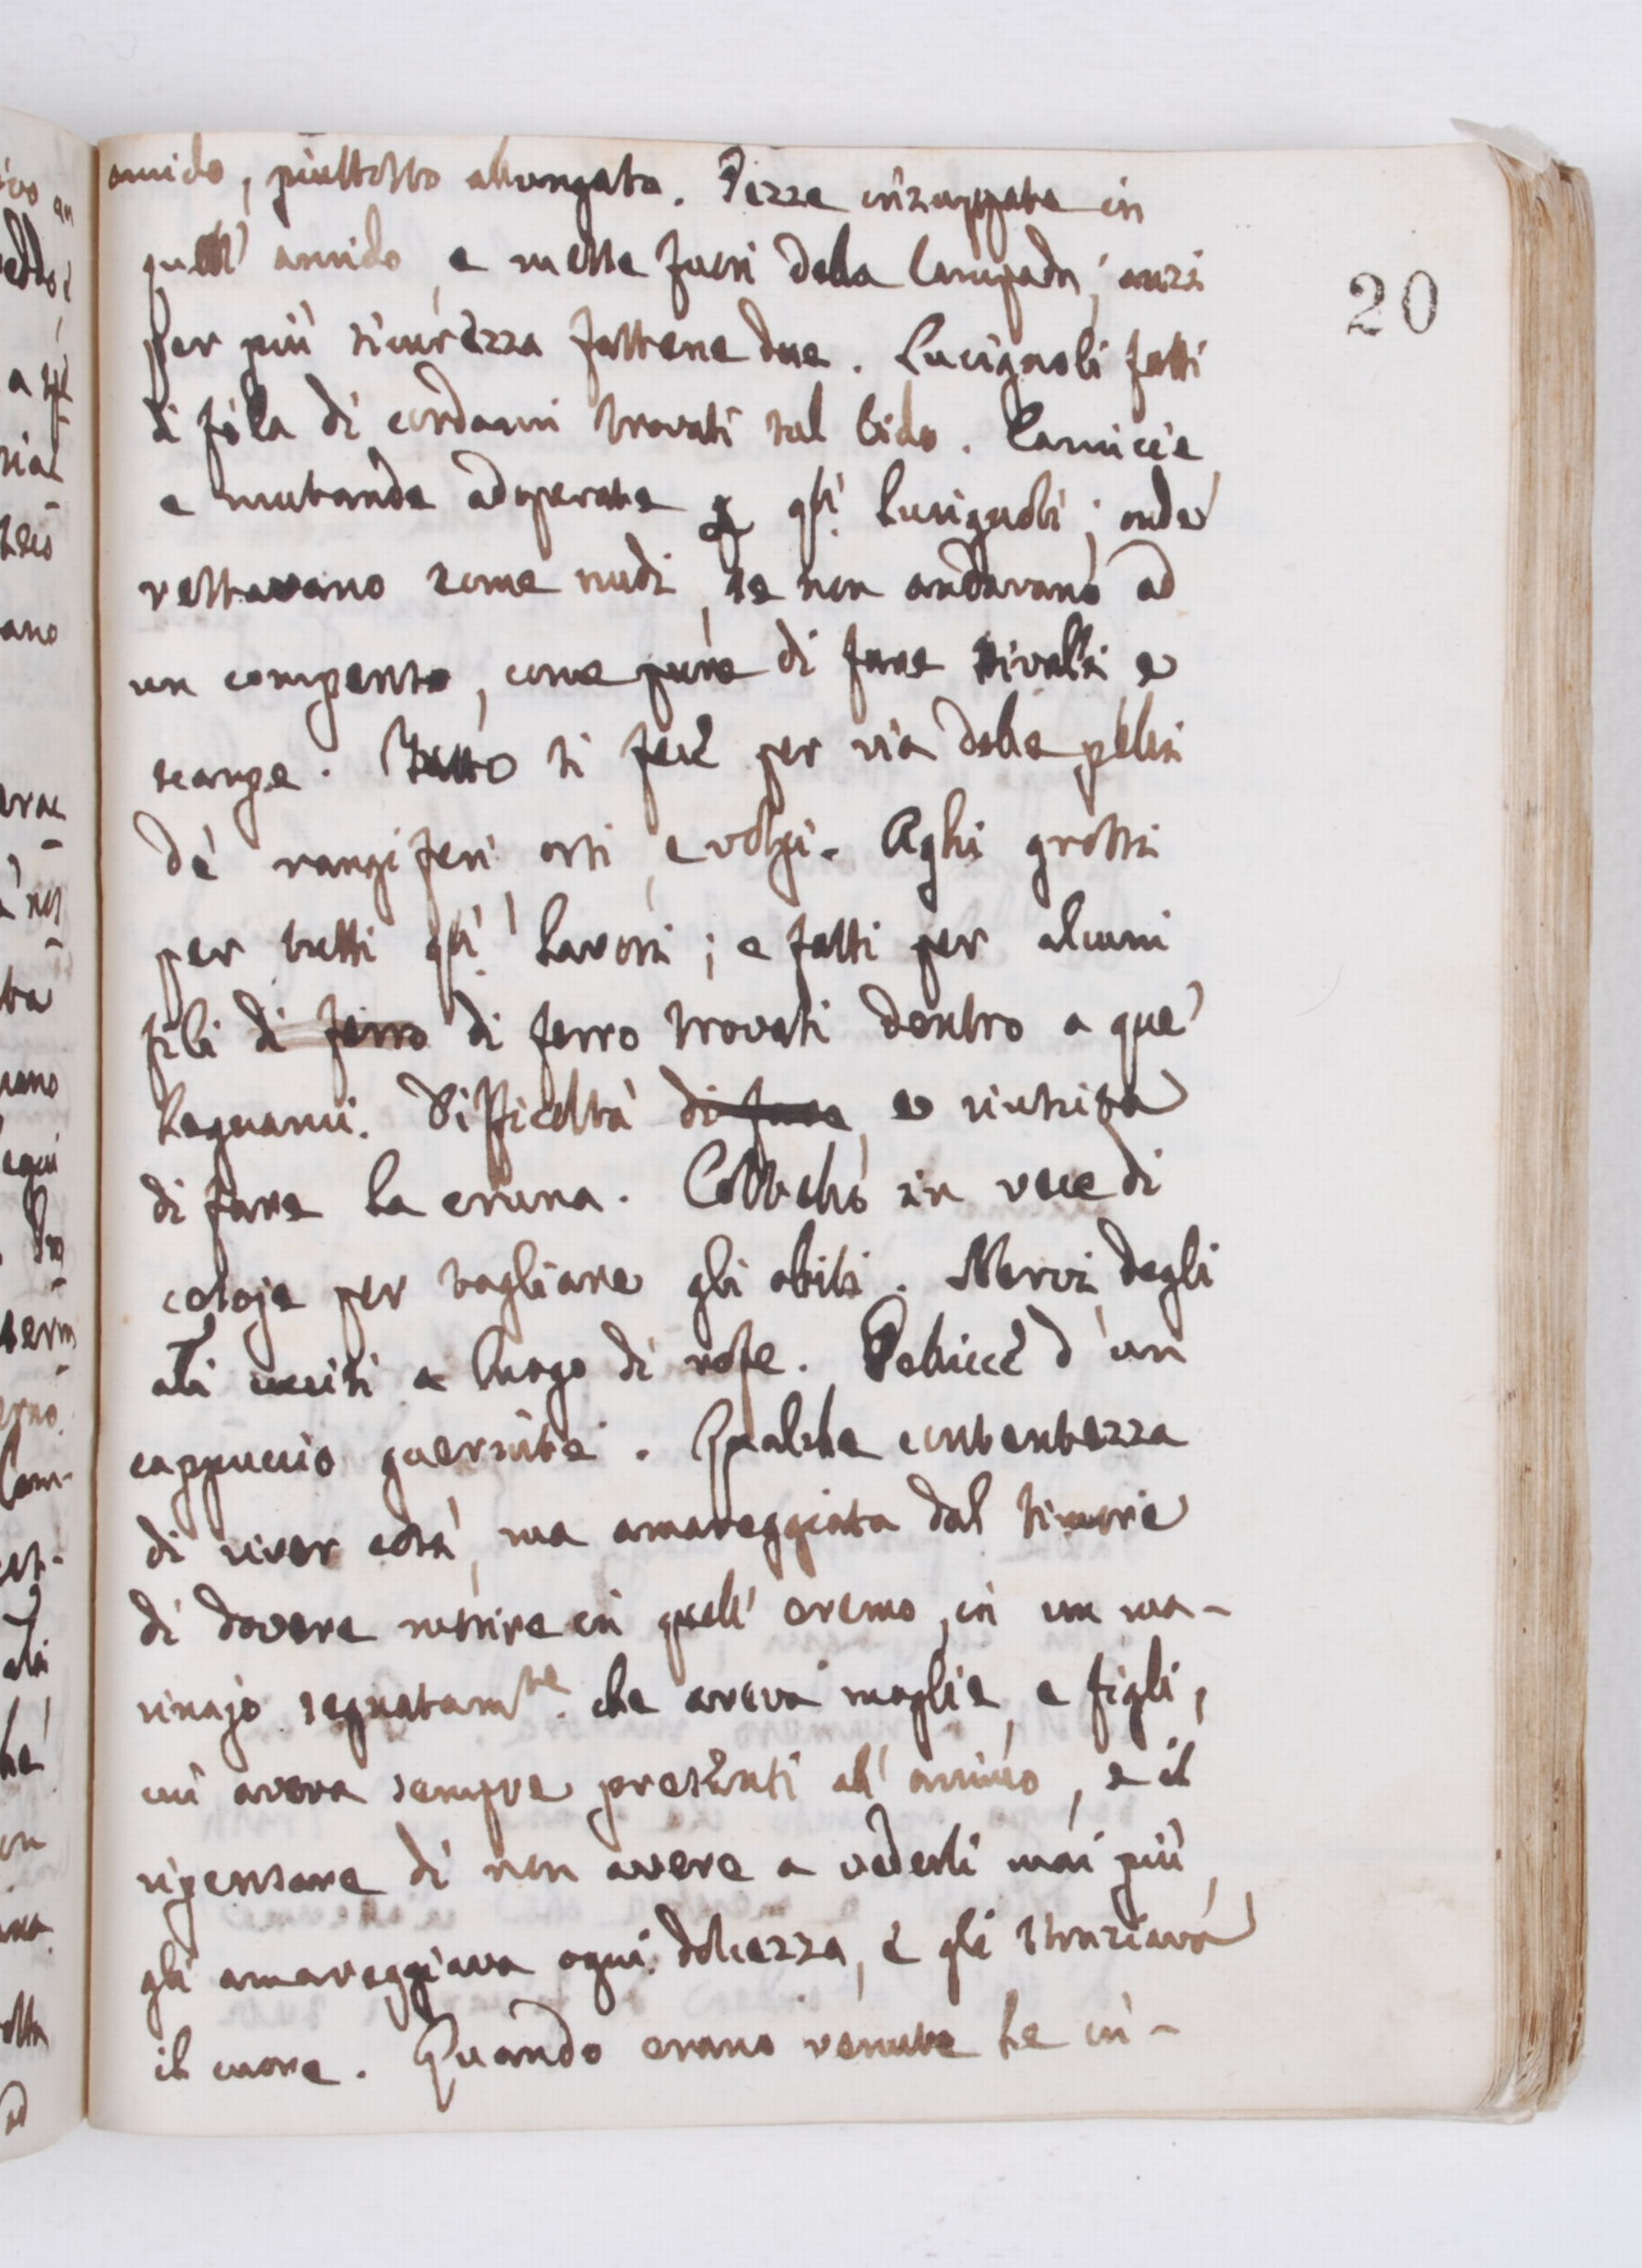 amido, piuttosto allungata. Pezze inzuppate in
quell' amido, e messe fuori della lampada; anzi
per più sicurezza fattene due. Lucignoli fatti
di fila di cordami trovati sul lido. Camicie
e mutande adoperate gli lucignoli; onde
restavano come nudi, se non andavano ad
un compenso, come pure di fare stivalli e
scarpe. Tutto si fece per via delle pelli
de' rangiferi orsi, e volpi. Aghi grossi
per tutti gli lavori; e fatti per alcuni
fili di ferro di ferro trovati dentro a que'
legnami. Difficoltà di fare e riuscita
di fare la cruna. Coltello in vece di
cesoje per tagliare gli abiti. Nervi degli
uccisi a luogo di refe. Pelliccie d' un
cappuccio guernite. Qualche contentezza
di viver così, ma amareggiata dal timore
di dovere morire in quell' eremo, in un ma-
rinajo segnatam.te che aveva moglie, e figli,
cui aveva sempre presenti all' animo, e il
ripensare di non avere a vederli mai più,
gli amareggiava ogni dolcezza, e gli straziava
il cuore. Quando erano venute le in-
20